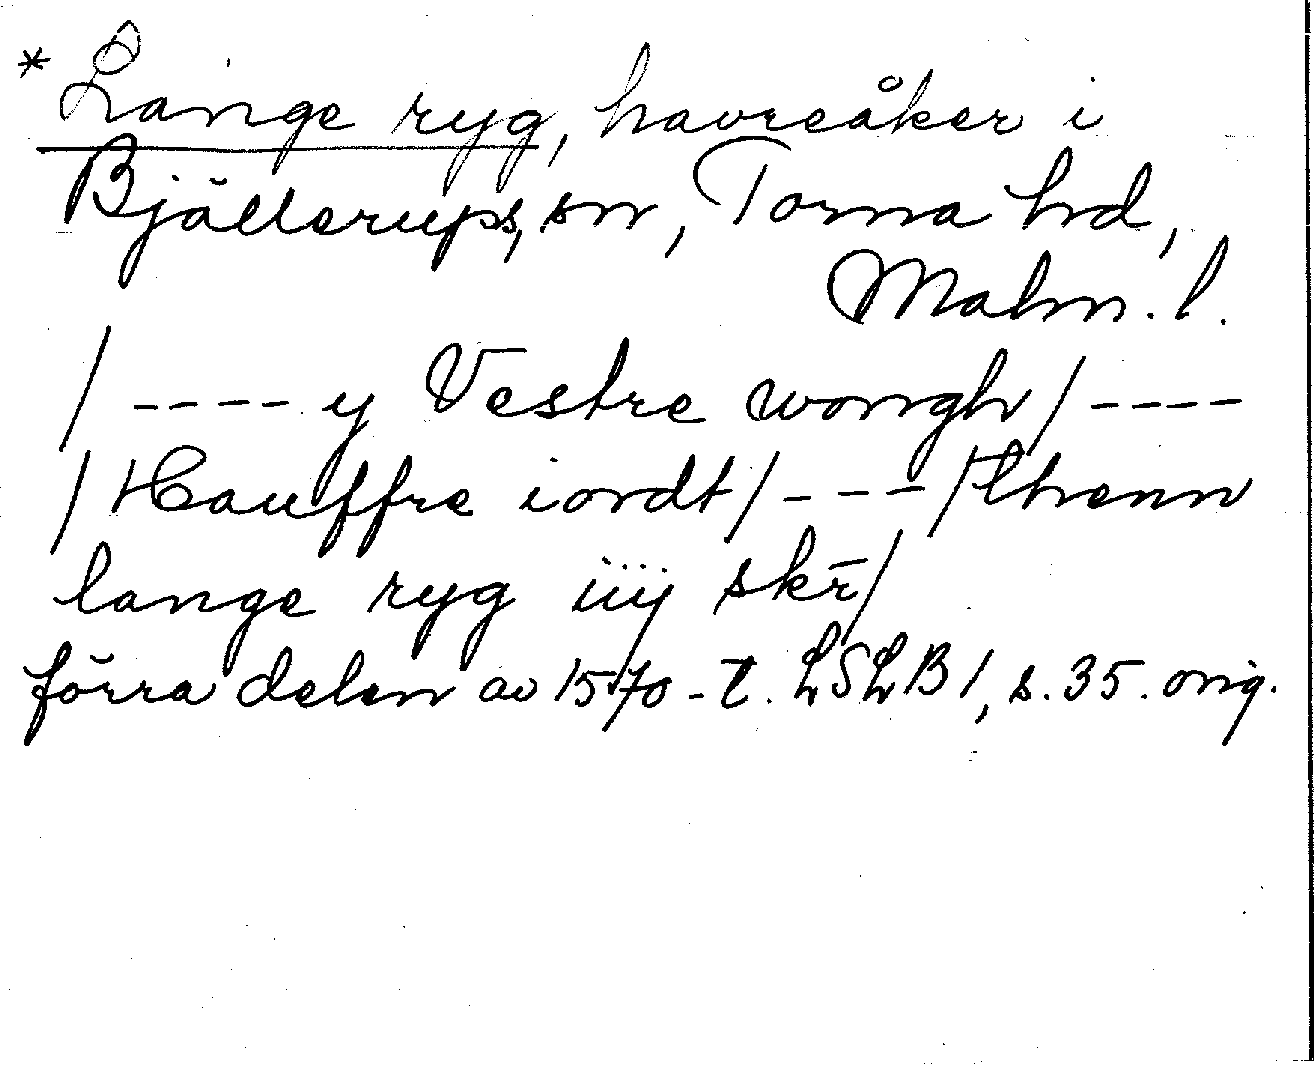 * Lange ryg, havreåker i
Bjällerups, sn, Torna hd,
Malm. l.
/ ---- y Vestre wongh / ----
/ Hauffre iordt / ---- / thenn
lange ryg iiij skr̄ /
förra delen av 1570-t. LSLB 1, s. 35. orig.